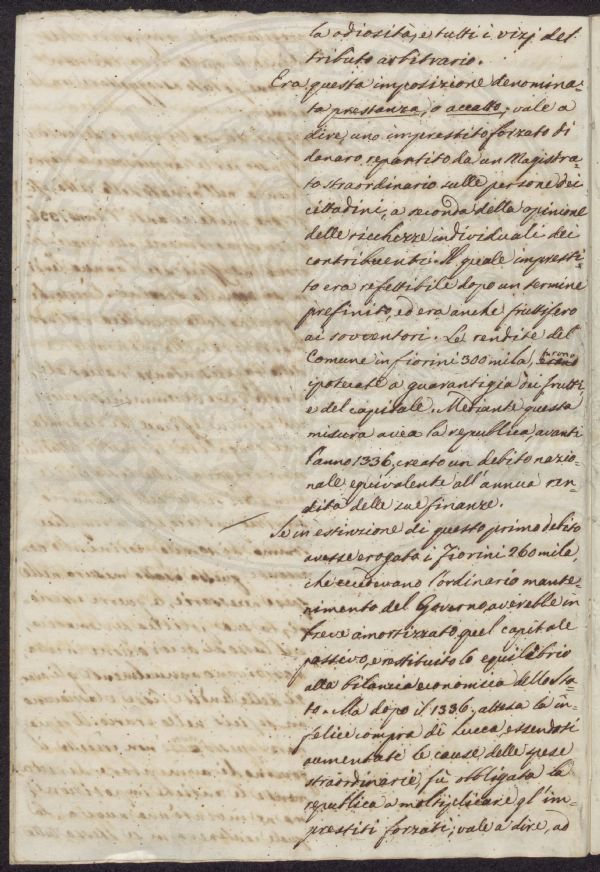 la odiosità, e tutti i vizj del
tributo arbitrario.
Era questa imposizione denomina-
ta prestanza, o accatto; vale a
dire, uno imprestito forzato di
denaro, repartito da un Magistra-
to straordinario sulle persone dei
cittadini, a seconda della opinione
delle ricchezze individuali dei
contribuenti. Il quale impresti-
to era refettibile dopo un termine
prefinito, ed era anche fruttifero
ai sovventori. Le rendite del
Comune in fiorini 300 mila, furono
ipotecate a guarantigia dei frutti,
e del capitale. Mediante questa
misura avea la republica, avanti
l'anno 1336, creato un debito nazio-
nale equivalente all'annua ren-
dita delle sue finanze.
Se in estinzione di questo primo debito
avesse erogata i Fiorini 260 mila,
che eccedevano l'ordinario mante-
nimento del Governo, averebbe in
breve amortizzato quel capitale
passivo, e restituito lo equilibrio
alla bilancia economica dello Sta-
to. Ma dopo il 1336, attesa la in-
felice compra di Lucca, essendosi
aumentate le cause delle spese
straordinarie, fù obbligata la
republica a moltiplicare gl'im-
prestiti forzati; vale a dire, ad